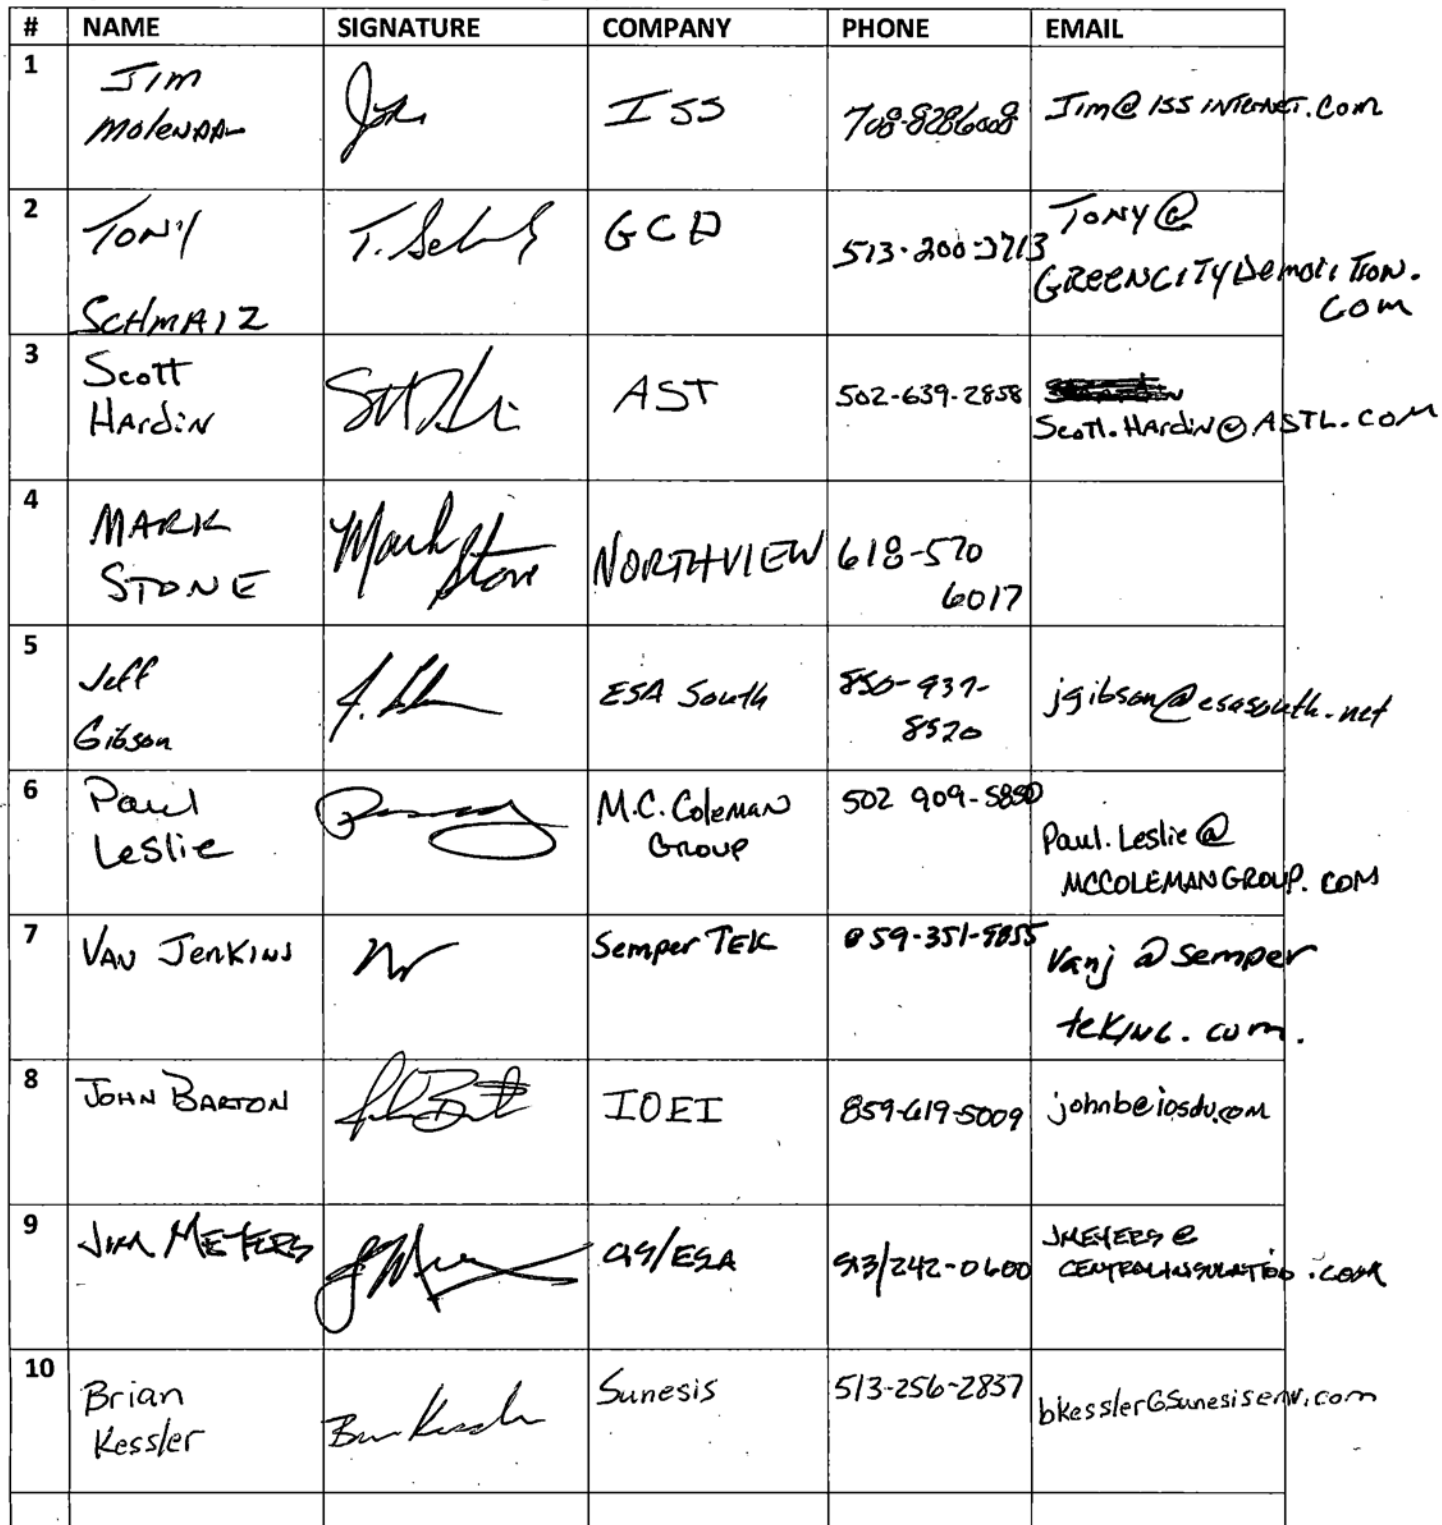 # NAME SIGNATURE COMPANY PHONE EMAIL
1
Jim
Molenaar
ISS
708-8286008
Jim@ISSINTERNET.com
2
TONY
SCHMALZ
T. Schmalz
GCD
513-200-3713
TONY@
GREENCITYDemoliTion.
com
3
Scott
HArdiN
AST
502-639-2858
Scott.HArdiN@ASTL.COM
4
MARK
STONE
Mark
Stone
NORTHVIEW
618-570
6017
5
Jeff
Gibson
ESA South
850-937-
8520
jgibson@esasouth.net
6
Paul
Leslie
M.C. Coleman
Group
502 909-5850
Paul.Leslie@
MCCOLEMANGROUP.COM
7
VAN JenKINS
Semper TEK
859-351-9855
Vanj@semper
teKINC.com.
8
JOHN BARTON
John Barton
IOEI
859-619-5009
johnb@iosdv.com
9
JIM MEYERS
513/242-0600
JMEYERS@
CENTRALINSULATION.COM
10
Brian
Kessler
Brian Kessler
Sunesis
513-256-2837
bkessler@Sunesisenv.com